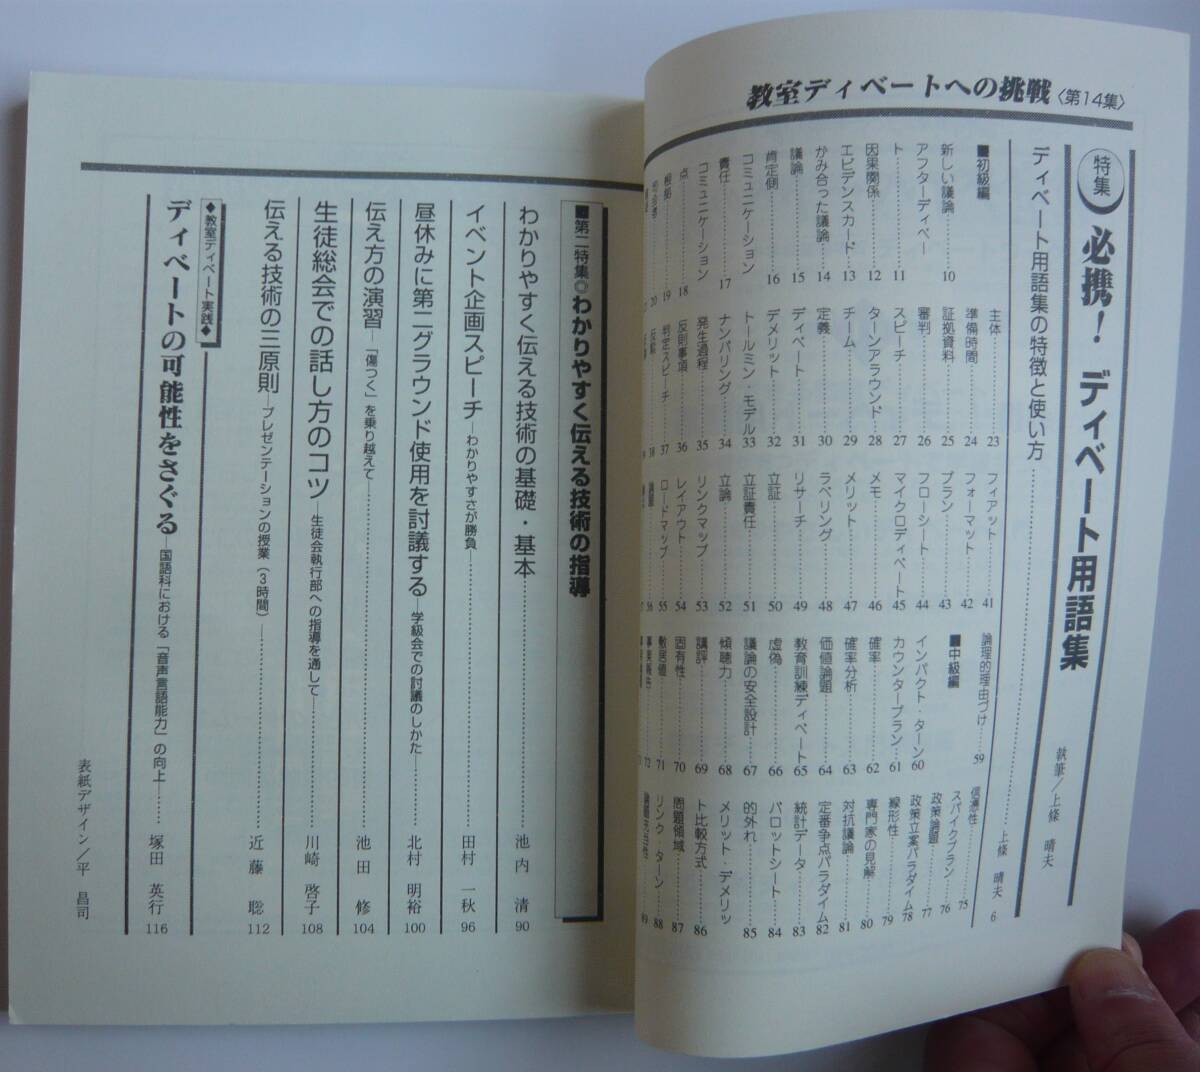 教室ディベートへの挑戦〈第14集〉
特集
必携！ ディベート用語集
執筆／上條 晴夫
ディベート用語集の特徴と使い方 上條 晴夫 6
■初級編
新しい議論 10
アフターディベー
ト 11
因果関係 12
エビデンスカード 13
かみ合った議論 14
議論 15
肯定側 16
コミュニケーション
責任 17
コミュニケーション
点 18
根拠 19
20
主体 23
準備時間 24
証拠資料 25
審判 26
スピーチ 27
ターンアラウンド 28
チーム 29
定義 30
ディベート 31
デメリット 32
トールミン・モデル 33
ナンバリング 34
発生過程 35
反則事項 36
判定スピーチ 37
反駁 38
フィアット 41
フォーマット 42
プラン 43
フローシート 44
マイクロディベート 45
メモ 46
メリット 47
ラベリング 48
リサーチ 49
立証 50
立証責任 51
立論 52
リンクマップ 53
レイアウト 54
ロードマップ 55
論題 56
論理的理由づけ 59
■中級編
インパクト・ターン 60
カウンタープラン 61
確率 62
確率分析 63
価値論題 64
教育訓練ディベート 65
虚偽 66
議論の安全設計 67
傾聴力 68
講評 69
固有性 70
敷居値 71
72
信憑性 75
スパイクプラン 76
政策論題 77
政策立案パラダイム 78
線形性 79
専門家の見解 80
対抗議論 81
定番争点パラダイム 82
統計データ 83
バロットシート 84
的外れ 85
メリット・デメリッ
ト比較方式 86
問題領域 87
リンク・ターン 88
89
■第二特集◎わかりやすく伝える技術の指導
わかりやすく伝える技術の基礎・基本 池内 清 90
イベント企画スピーチ―わかりやすさが勝負 田村 一秋 96
昼休みに第二グラウンド使用を討議する―学級会での討議のしかた 北村 明裕 100
伝え方の演習―「傷つく」を乗り越えて 池田 修 104
生徒総会での話し方のコツ―生徒会執行部への指導を通して 川崎 啓子 108
伝える技術の三原則―プレゼンテーションの授業（3時間） 近藤 聡 112
◆教室ディベート実践◆
ディベートの可能性をさぐる―国語科における「音声言語能力」の向上 塚田 英行 116
表紙デザイン／平 昌司